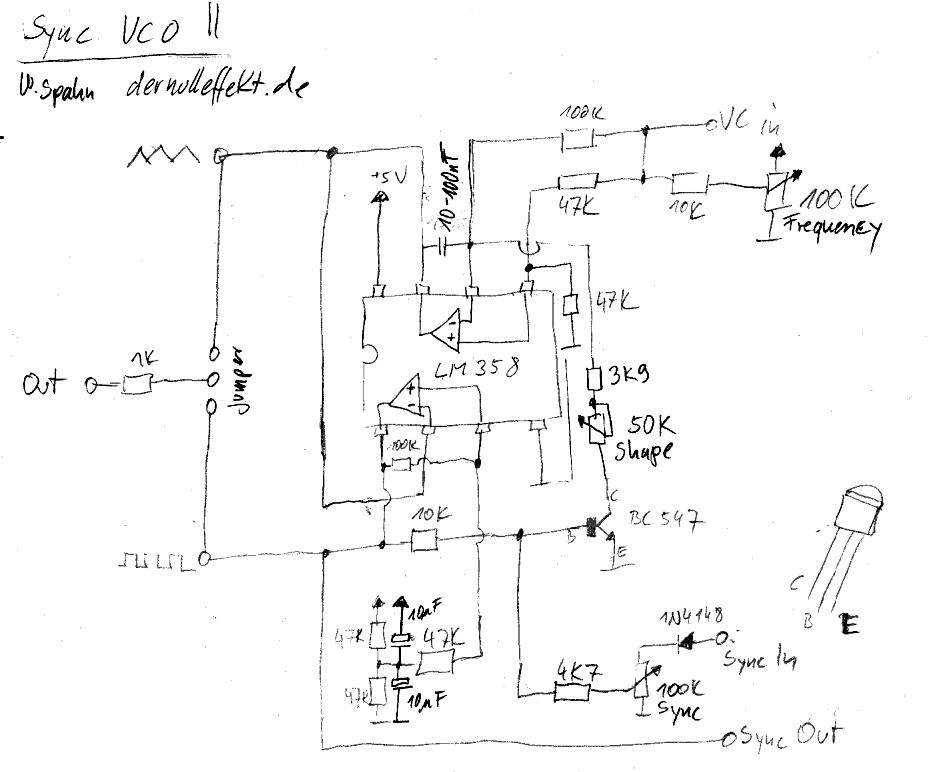 Sync VCO II
W. Spahn dernulleffekt.de
100K
VC in
+5V
10-100nF
47K
10K
100K
Frequency
47K
Out
1K
Jumper
-
+
LM 358
+
-
3K9
50K
Shape
100K
10K
C
B
BC 547
E
C
B
E
10µF
47K
47K
1N4148
Sync In
47K
10µF
4K7
100K
Sync
Sync Out